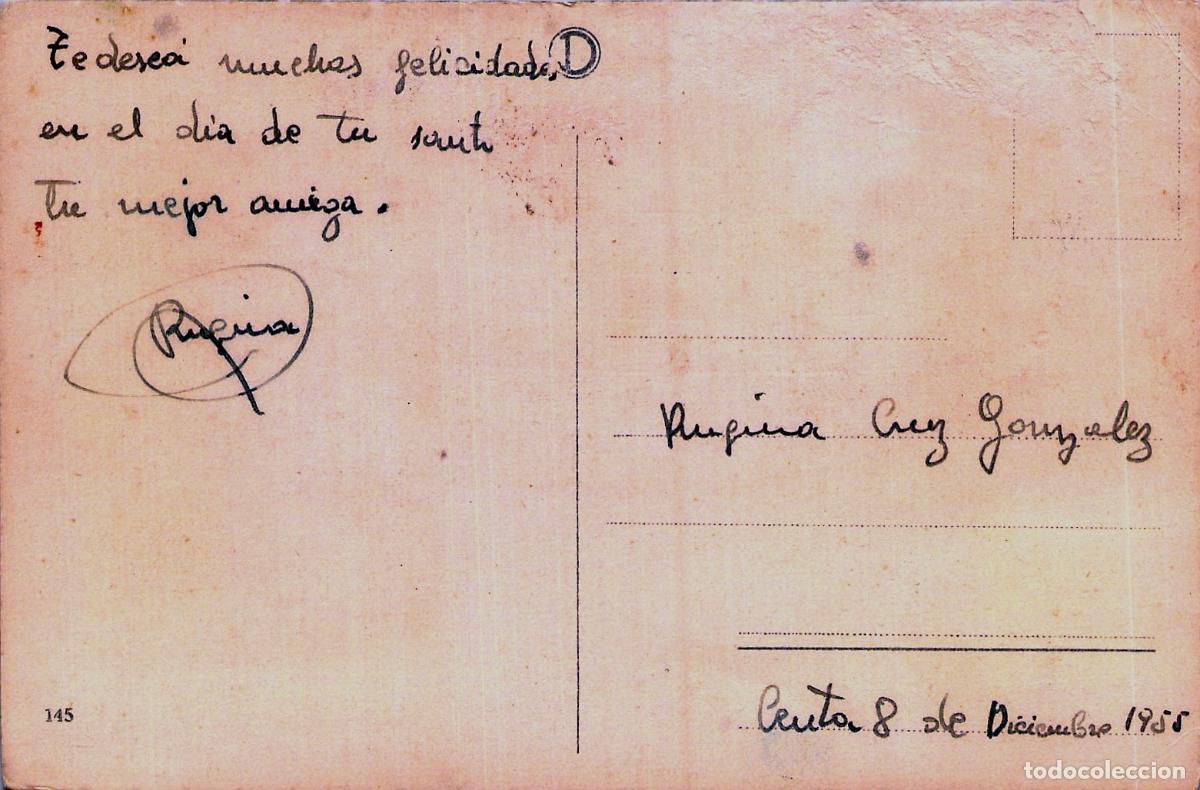 Te desea muchas felicidades
D
en el dia de tu santo
tu mejor amiga.
Rugina
Rugina Cruz Gonzalez
Ceuta 8 de Diciembre 1955
145
todocoleccion